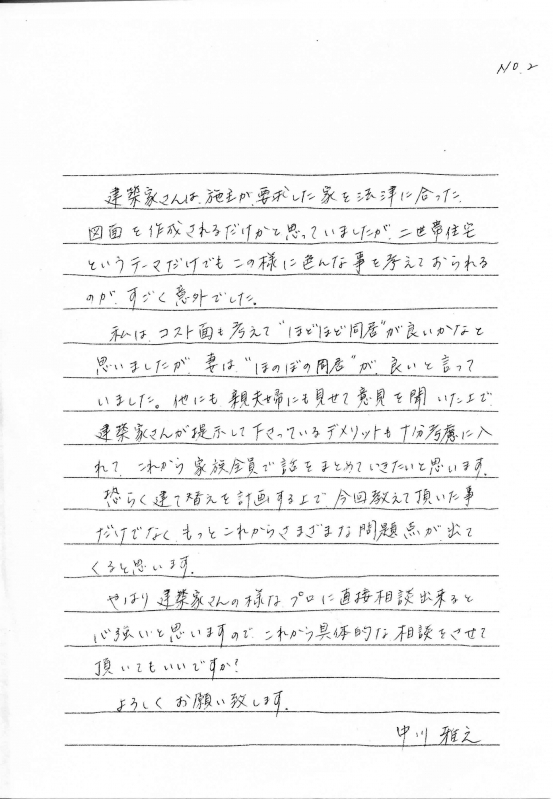 NO.2
建築家さんは、施主が、要求した家を法津に合った、
図面を作成されるだけかと思っていましたが、二世帯住宅
というテーマだけでもこの様に色んな事を考えておられる
のが、すごく意外でした。
私は、コスト面も考えて"ほどほど同居"が良いかなと
思いましたが、妻は"ほのぼの同居"が、良いと言って
いました。他にも親夫婦にも見せて意見を聞いた上で、
建築家さんが提示して下さっているデメリットも十分考慮に入
れて、これから家族全員で話をまとめていきたいと思います。
恐らく建て替えを計画する上で今回教えて頂いた事
だけでなく、もっとこれからさまざまな問題点が出て
くると思います。
やはり建築家さんの様なプロに直接相談出来ると
心強いと思いますので、これから具体的な相談をさせて
頂いてもいいですか?
よろしくお願い致します。
中川 雅之